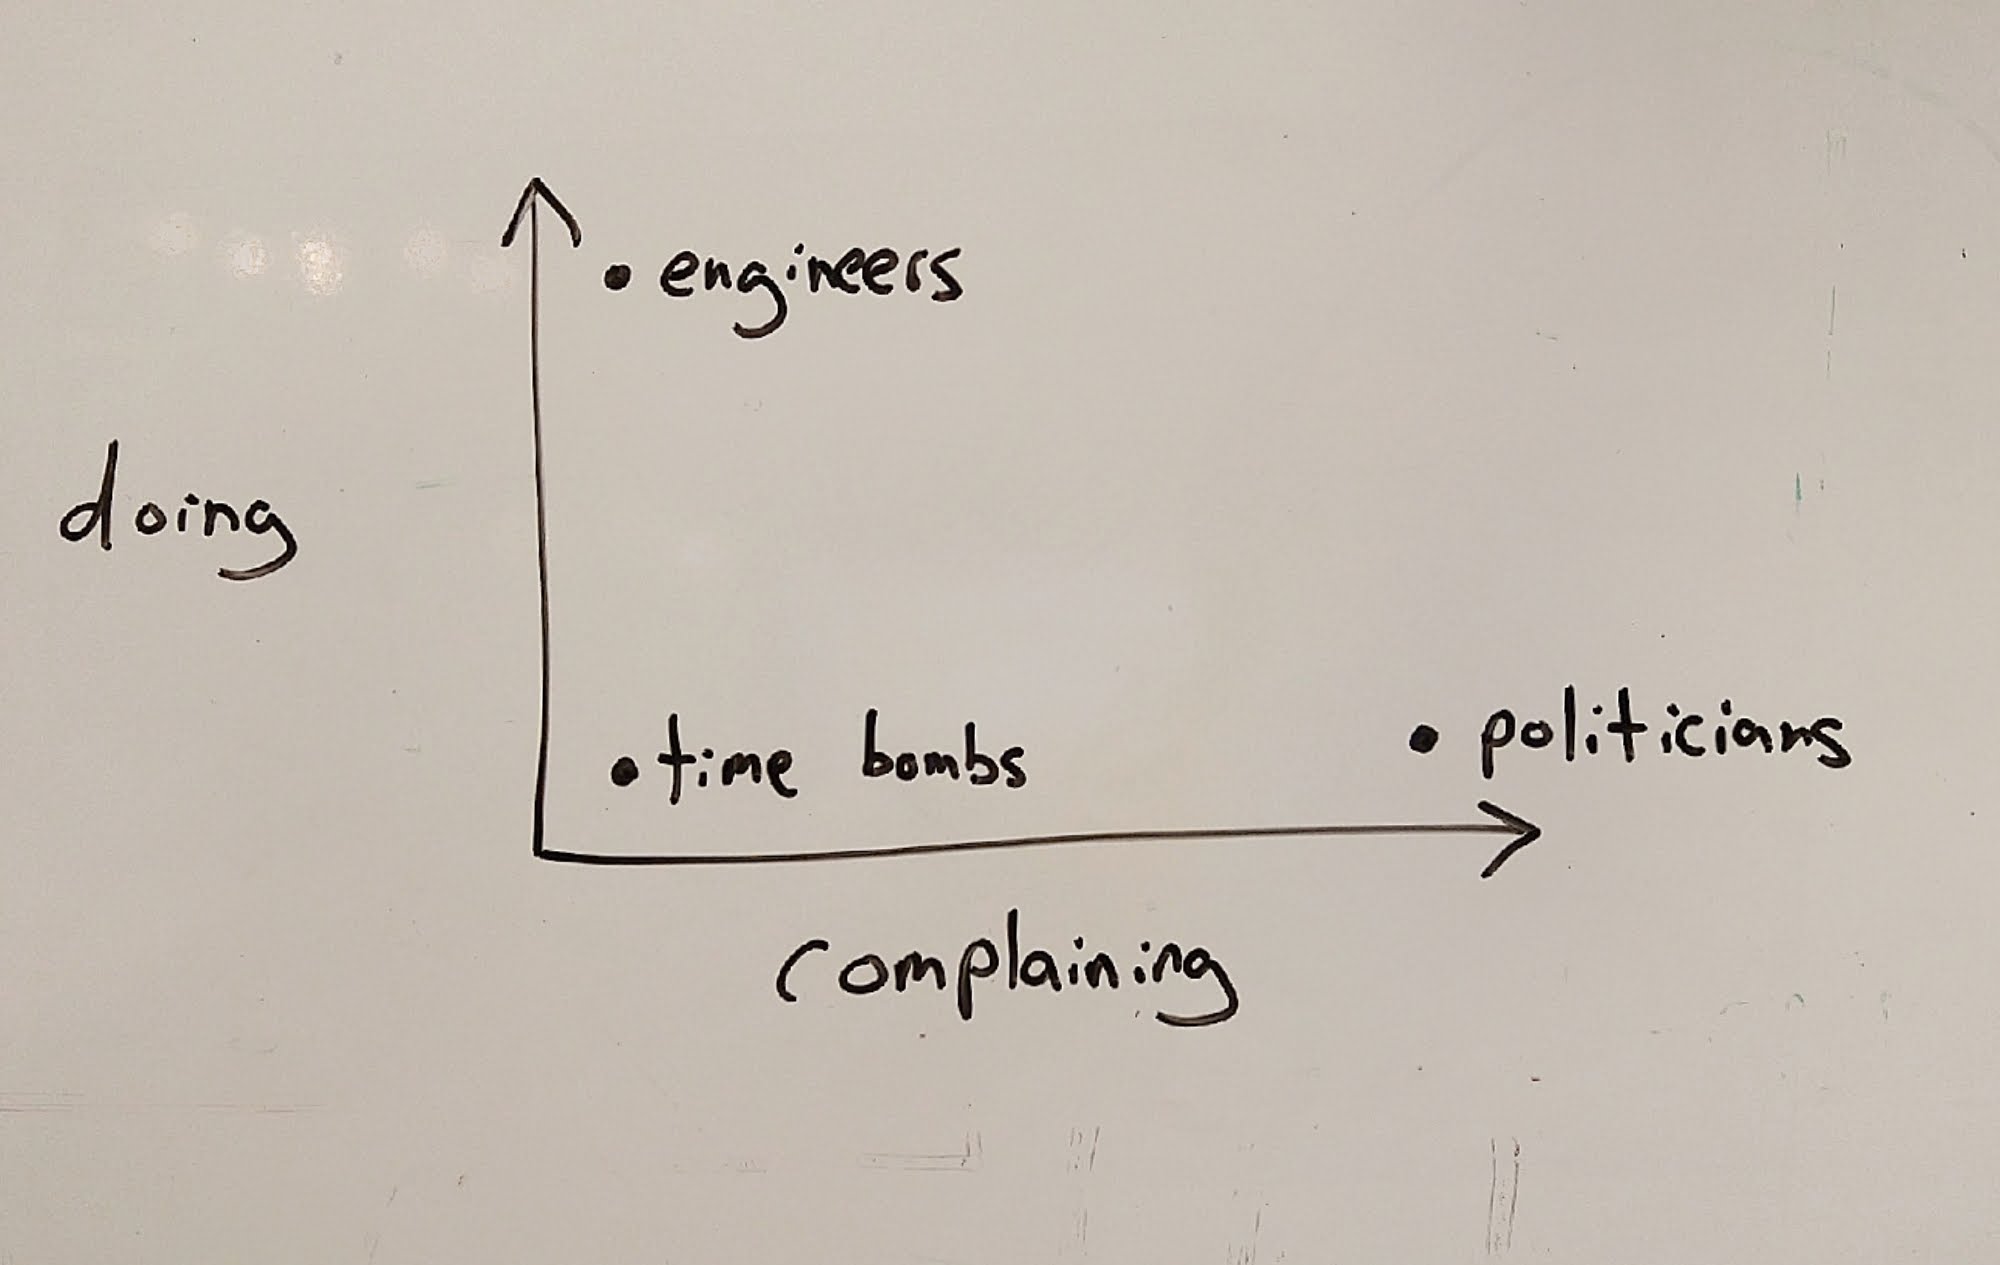 engineers
doing
time bombs
politicians
complaining